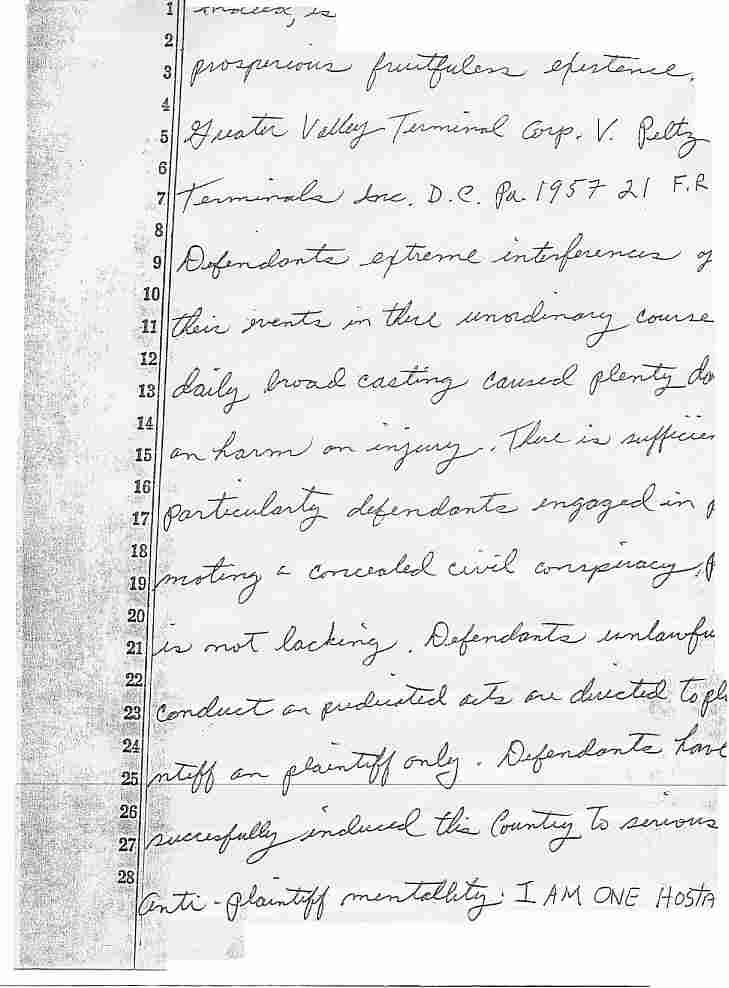 1 indeed, is
2
3 prosperious fruitfuless existence.
4
5 Greater Valley Terminal Corp. V. Peltz
6
7 Terminals Inc. D.C. Pa. 1957 21 F.R
8
9 Defendants extreme interferences of
10
11 their events in there unordinary course
12
13 daily broad casting caused plenty do
14
15 an harm on injury. There is sufficien
16
17 particularty defendants engaged in p
18
19 moting a concealed civil conspiracy,
20
21 is not lacking. Defendants unlawfu
22
23 conduct or predicated acts are directed to pla
24
25 ntiff on plaintiff only. Defendants have
26
27 succesfully induced this Country to serious
28
anti-plaintiff mentallity. I AM ONE HOSTA